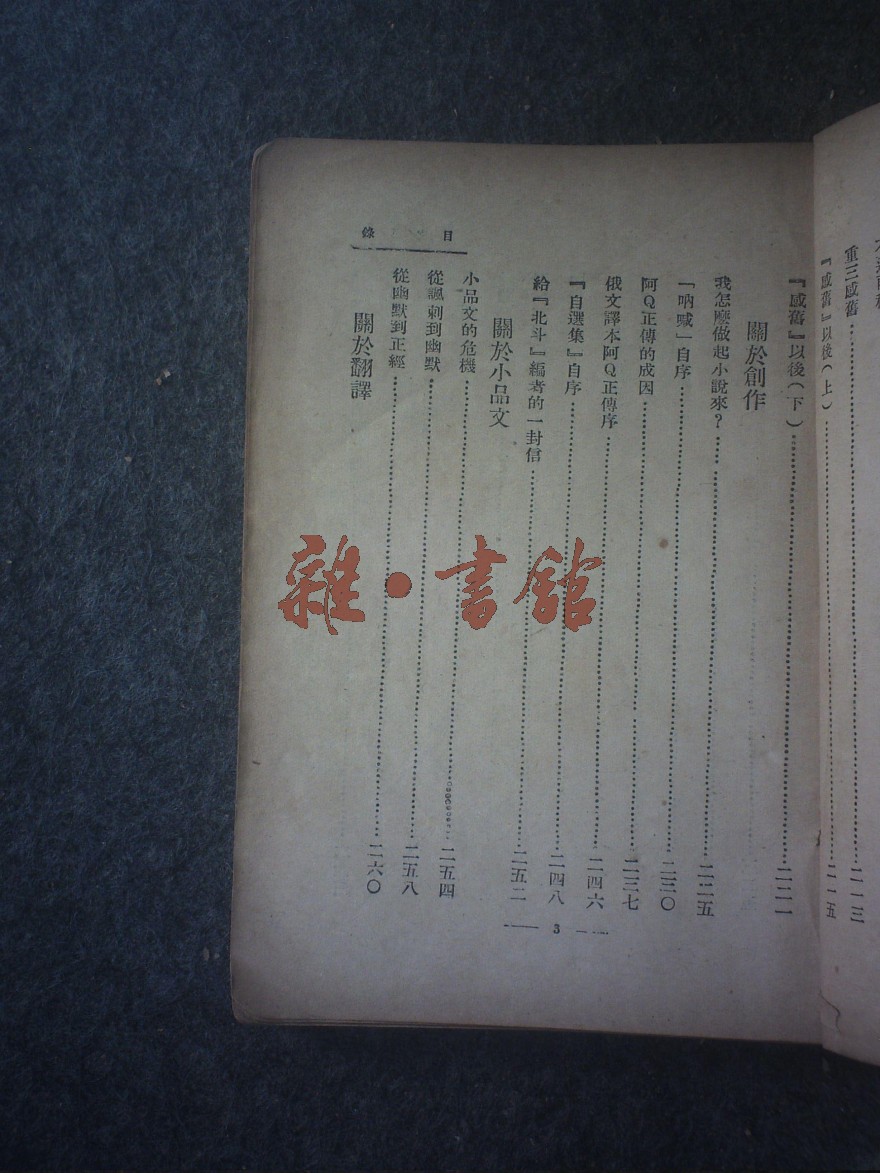 重三感舊⋯⋯二一三
『感舊』以後(上)⋯⋯二一五
『感舊』以後(下)⋯⋯二二一
關於創作
我怎麼做起小說來?⋯⋯二二五
「吶喊」自序⋯⋯二三〇
阿Q正傳的成因⋯⋯二三七
俄文譯本阿Q正傳序⋯⋯二四六
『自選集』自序⋯⋯二四八
給『北斗』編者的一封信⋯⋯二五二
關於小品文
小品文的危機⋯⋯二五四
從諷刺到幽默⋯⋯二五八
從幽默到正經⋯⋯二六〇
關於翻譯
目錄
3
雜·書館